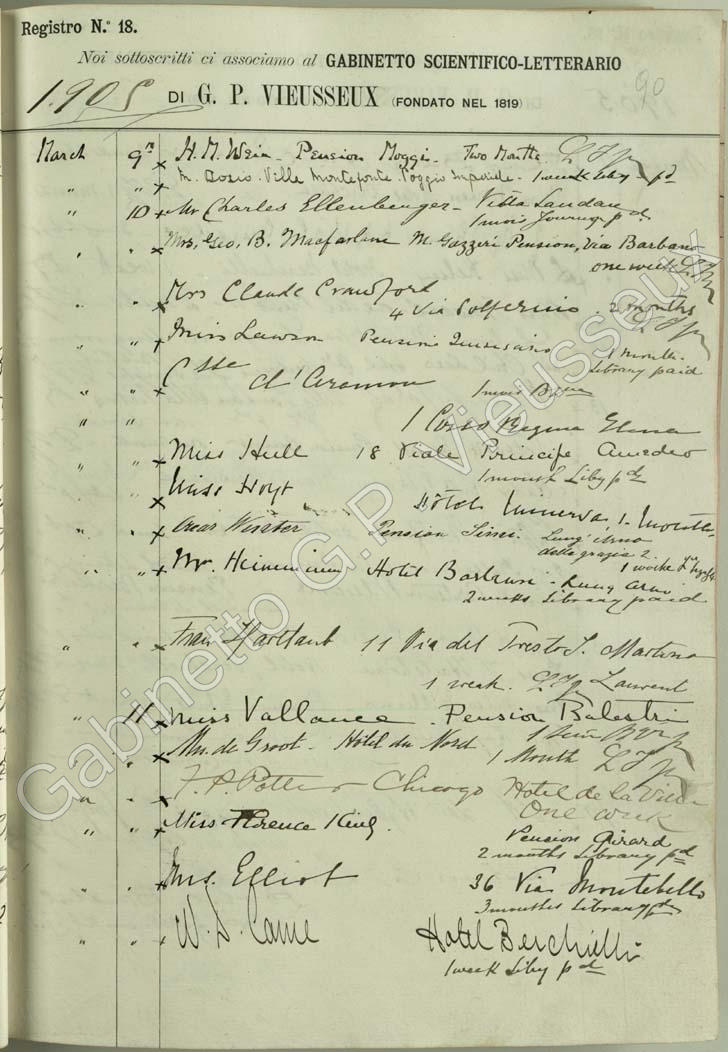 Registro N.º 18.
Noi sottoscritti ci associamo al GABINETTO SCIENTIFICO-LETTERARIO
90
1905 DI G. P. VIEUSSEUX (FONDATO NEL 1819)
March 9 H. M. Weir - Pension Moggi - Two Months
" " x M. Villa Montefonte Poggio Imperiale - 1 week Liby pd
" 10 x Mr Charles Ellenberger - Villa Landau
1 mois Journaux pd
" " x Mrs. Geo. B. Macfarlane M. Gazzeri Pension, Via Barbano
one week
" " x Mrs Claude Crawford
4 Via Solferino . 2 months
" " x Miss Lawson Pension 1 month
Library paid
" " x Ctsse d'Aramon
1 mois
" " 1 Corso Regina Elena
" " x Miss Hull 18 Viale Principe Amedeo
1 month Liby pd
x Miss Hoyt Hôtel Minerva, 1 month
" " x Winter Pension Simi. Lung' Arno
delle grazie 2.
1 week
" " x Mr. Hotel Lung Arno
2 weeks Library paid
" " x Frau Hartlaub 11 Via del Presto S. Martino
1 week. Laurent
" 11 x Miss Vallance . Pension Balestri
" " x de Groot - Hôtel du Nord 1 Month
" " x F. A. Potter Chicago Hotel de la Ville
One week
" " x Miss Florence King.
Pension Girard
2 months Library pd
" " x Mrs. Elliot 36 Via Montebello
3 months Library pd
" " x W. D. Caroe Hotel Berchielli
1 week Liby pd
Gabinetto G.P. Vieusseux